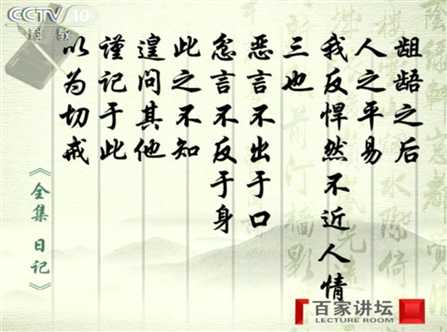 CCTV 10
龃龉之后
人之平易
我反悍然不近人情
三也
恶言不出于口
忿言不反于身
此之不知
遑问其他
谨记于此
以为切戒
《全集 日记》
百家讲坛
LECTURE ROOM